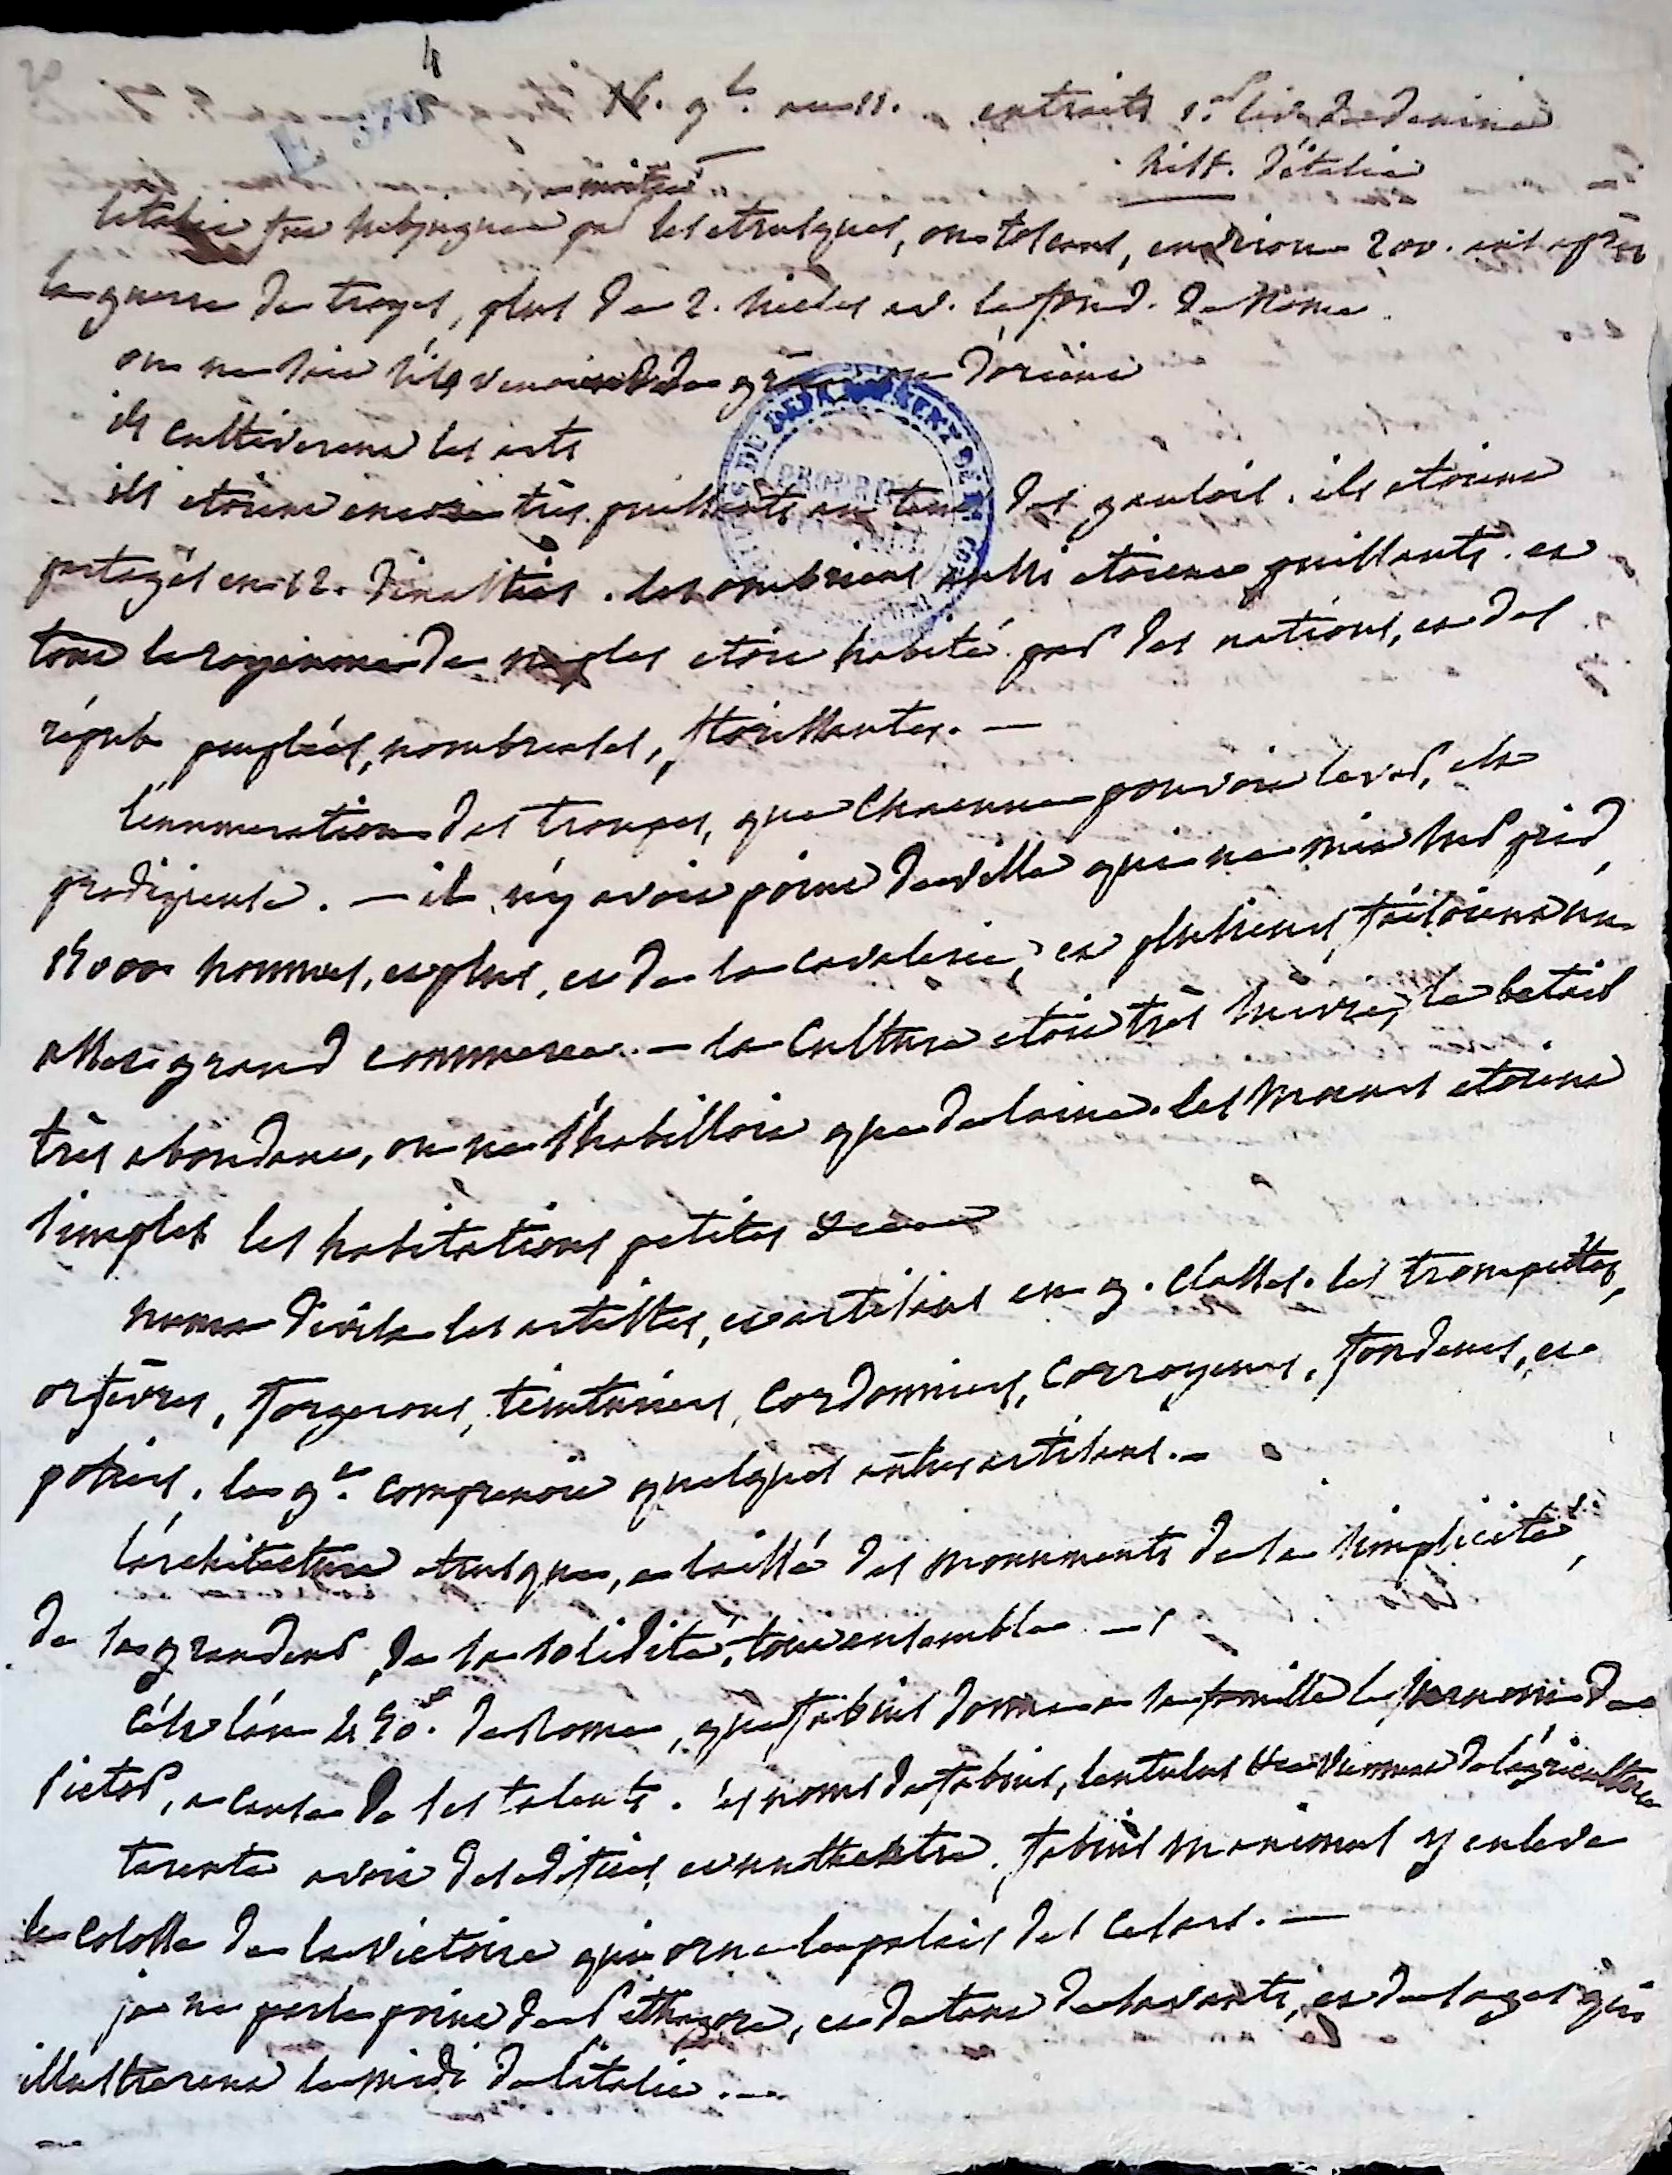 4
N. 9bre. an 11. extraits 1er livre de denina
hist. d'italie
moitié
l'italie fut subjuguée par les etrusques, ou toscans, environ 200. ans après
la guerre de troyes, plus de 2. siecles av. la fond. de Rome.
on ne sait s'ils venoient de grèce ou d'orient
ils cultiverent les arts
ils etoient encore très puissants au tems des gaulois. ils etoient
partagés en 12. dinasties. les ombriens aussi etoient puissants. et
tout le royaume de naples etoit habité par des nations, et des
répub. peuplées, nombreuses, florissantes. —
l'enumeration des troupes, que chacune pouvoit lever, est
prodigieuse. — il n'y avoit point de ville qui ne mit sur pied
15000 hommes, et plus, et de la cavalerie; et plusieurs faisoient un
assez grand commerce. — la culture etoit très suivie, le betail
très abondant, on ne s'habilloit que de laine. les moeurs etoient
simples les habitations petites
numa divisa les artistes, et artisans en 9. classes. les trompettes,
orfèvres, forgerons, teinturiers, cordonniers, corroyeurs, fondeurs, et
potiers. la 9e. comprenoit quelques autres artisans. —
l'architecture etrusque, a laissé des monuments de la simplicité,
de la grandeur, de la solidité, tout ensemble. —
c'est l'an 450. de Rome, que fabius donna a sa famille le surnom de
Pictor, a cause de ses talents. les noms de fabius, lentulus viennent de l'agriculture
tarente avoit des edifices, et un theatre. fabius maximus y enleva
le colosse de la victoire qui orna le palais des Cesars. —
je ne parle point de Pithagore, et de tant de savants, et de sages qui
illustrerent le midi de l'italie. —